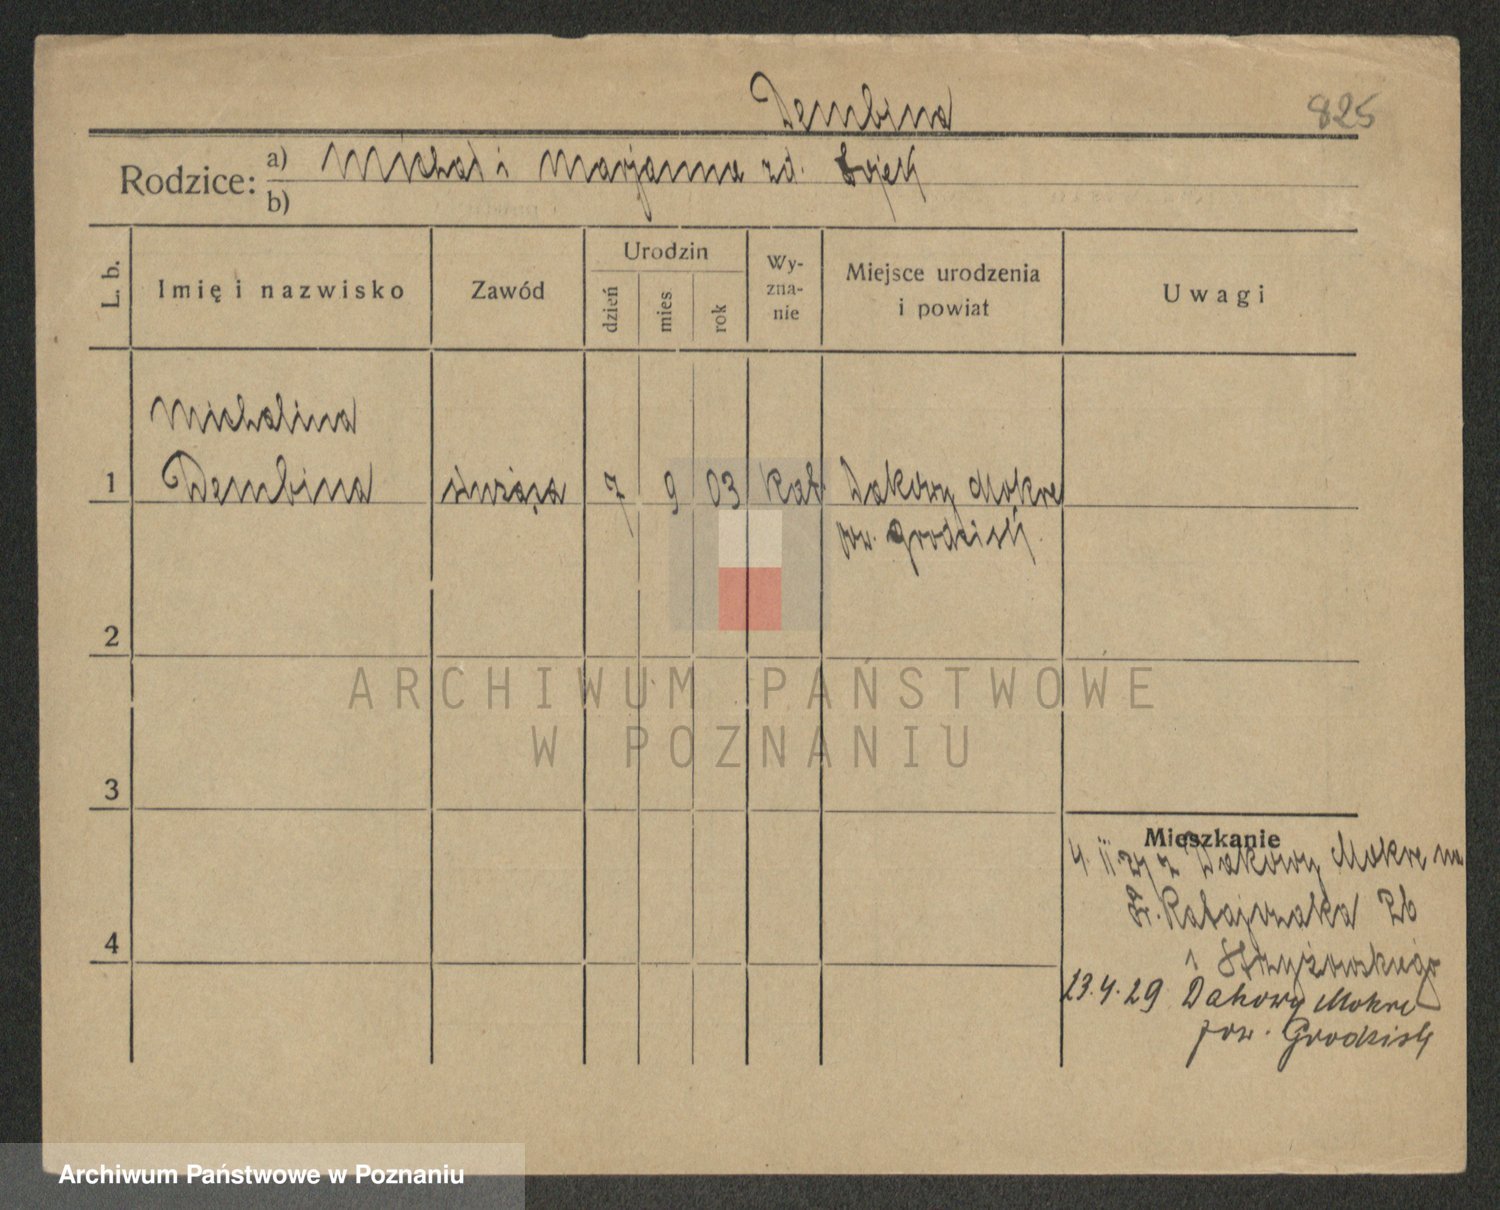 Dembina
825
Rodzice:
a) Michał i Marjanna zd.
b)
L. b.
Imię i nazwisko
Zawód
Urodzin
dzień
mies
rok
Wy-
zna-
nie
Miejsce urodzenia
i powiat
Uwagi
Michalina
1 Dembina służąca 7 9 03 kat Dakowy Mokre
pow. Grodzisk
2
3
4
ARCHIWUM PAŃSTWOWE
W POZNANIU
Mieszkanie
4. II 27 z Dakowy Mokre na
Fr. Ratajczaka 26
i Strzyżowskiego
23.4.29 Dakowy Mokre
pow. Grodzisk
Archiwum Państwowe w Poznaniu